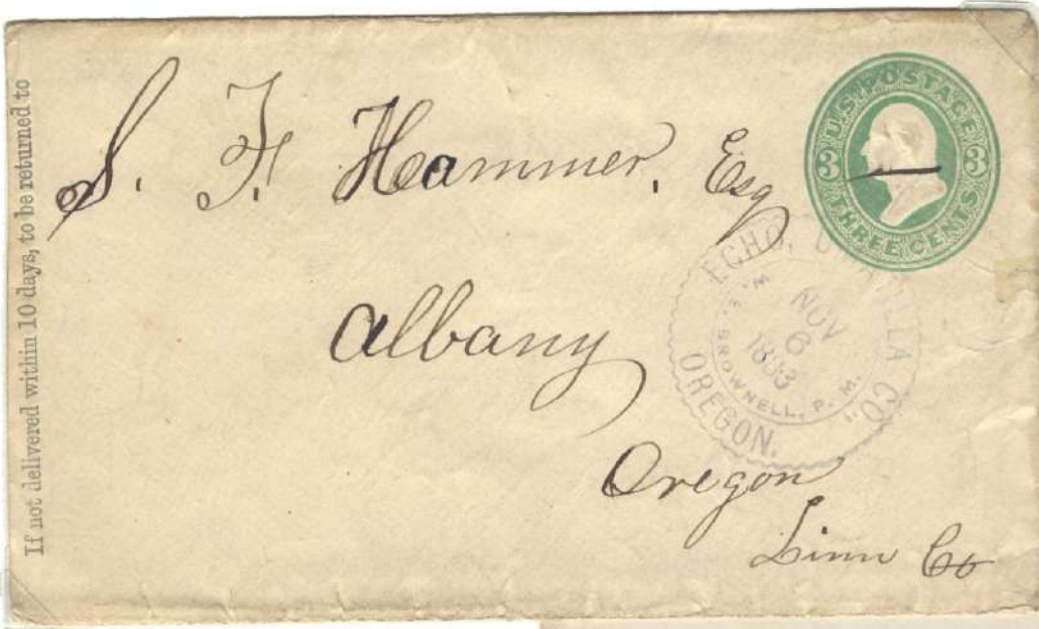 If not delivered within 10 days, to be returned to
S. F. Hammer, Esq
Albany
Oregon
Linn Co
U.S. POSTAGE
3 3
THREE CENTS
ECHO, CO.
NOV
6
BROWNELL, P. M.
OREGON.